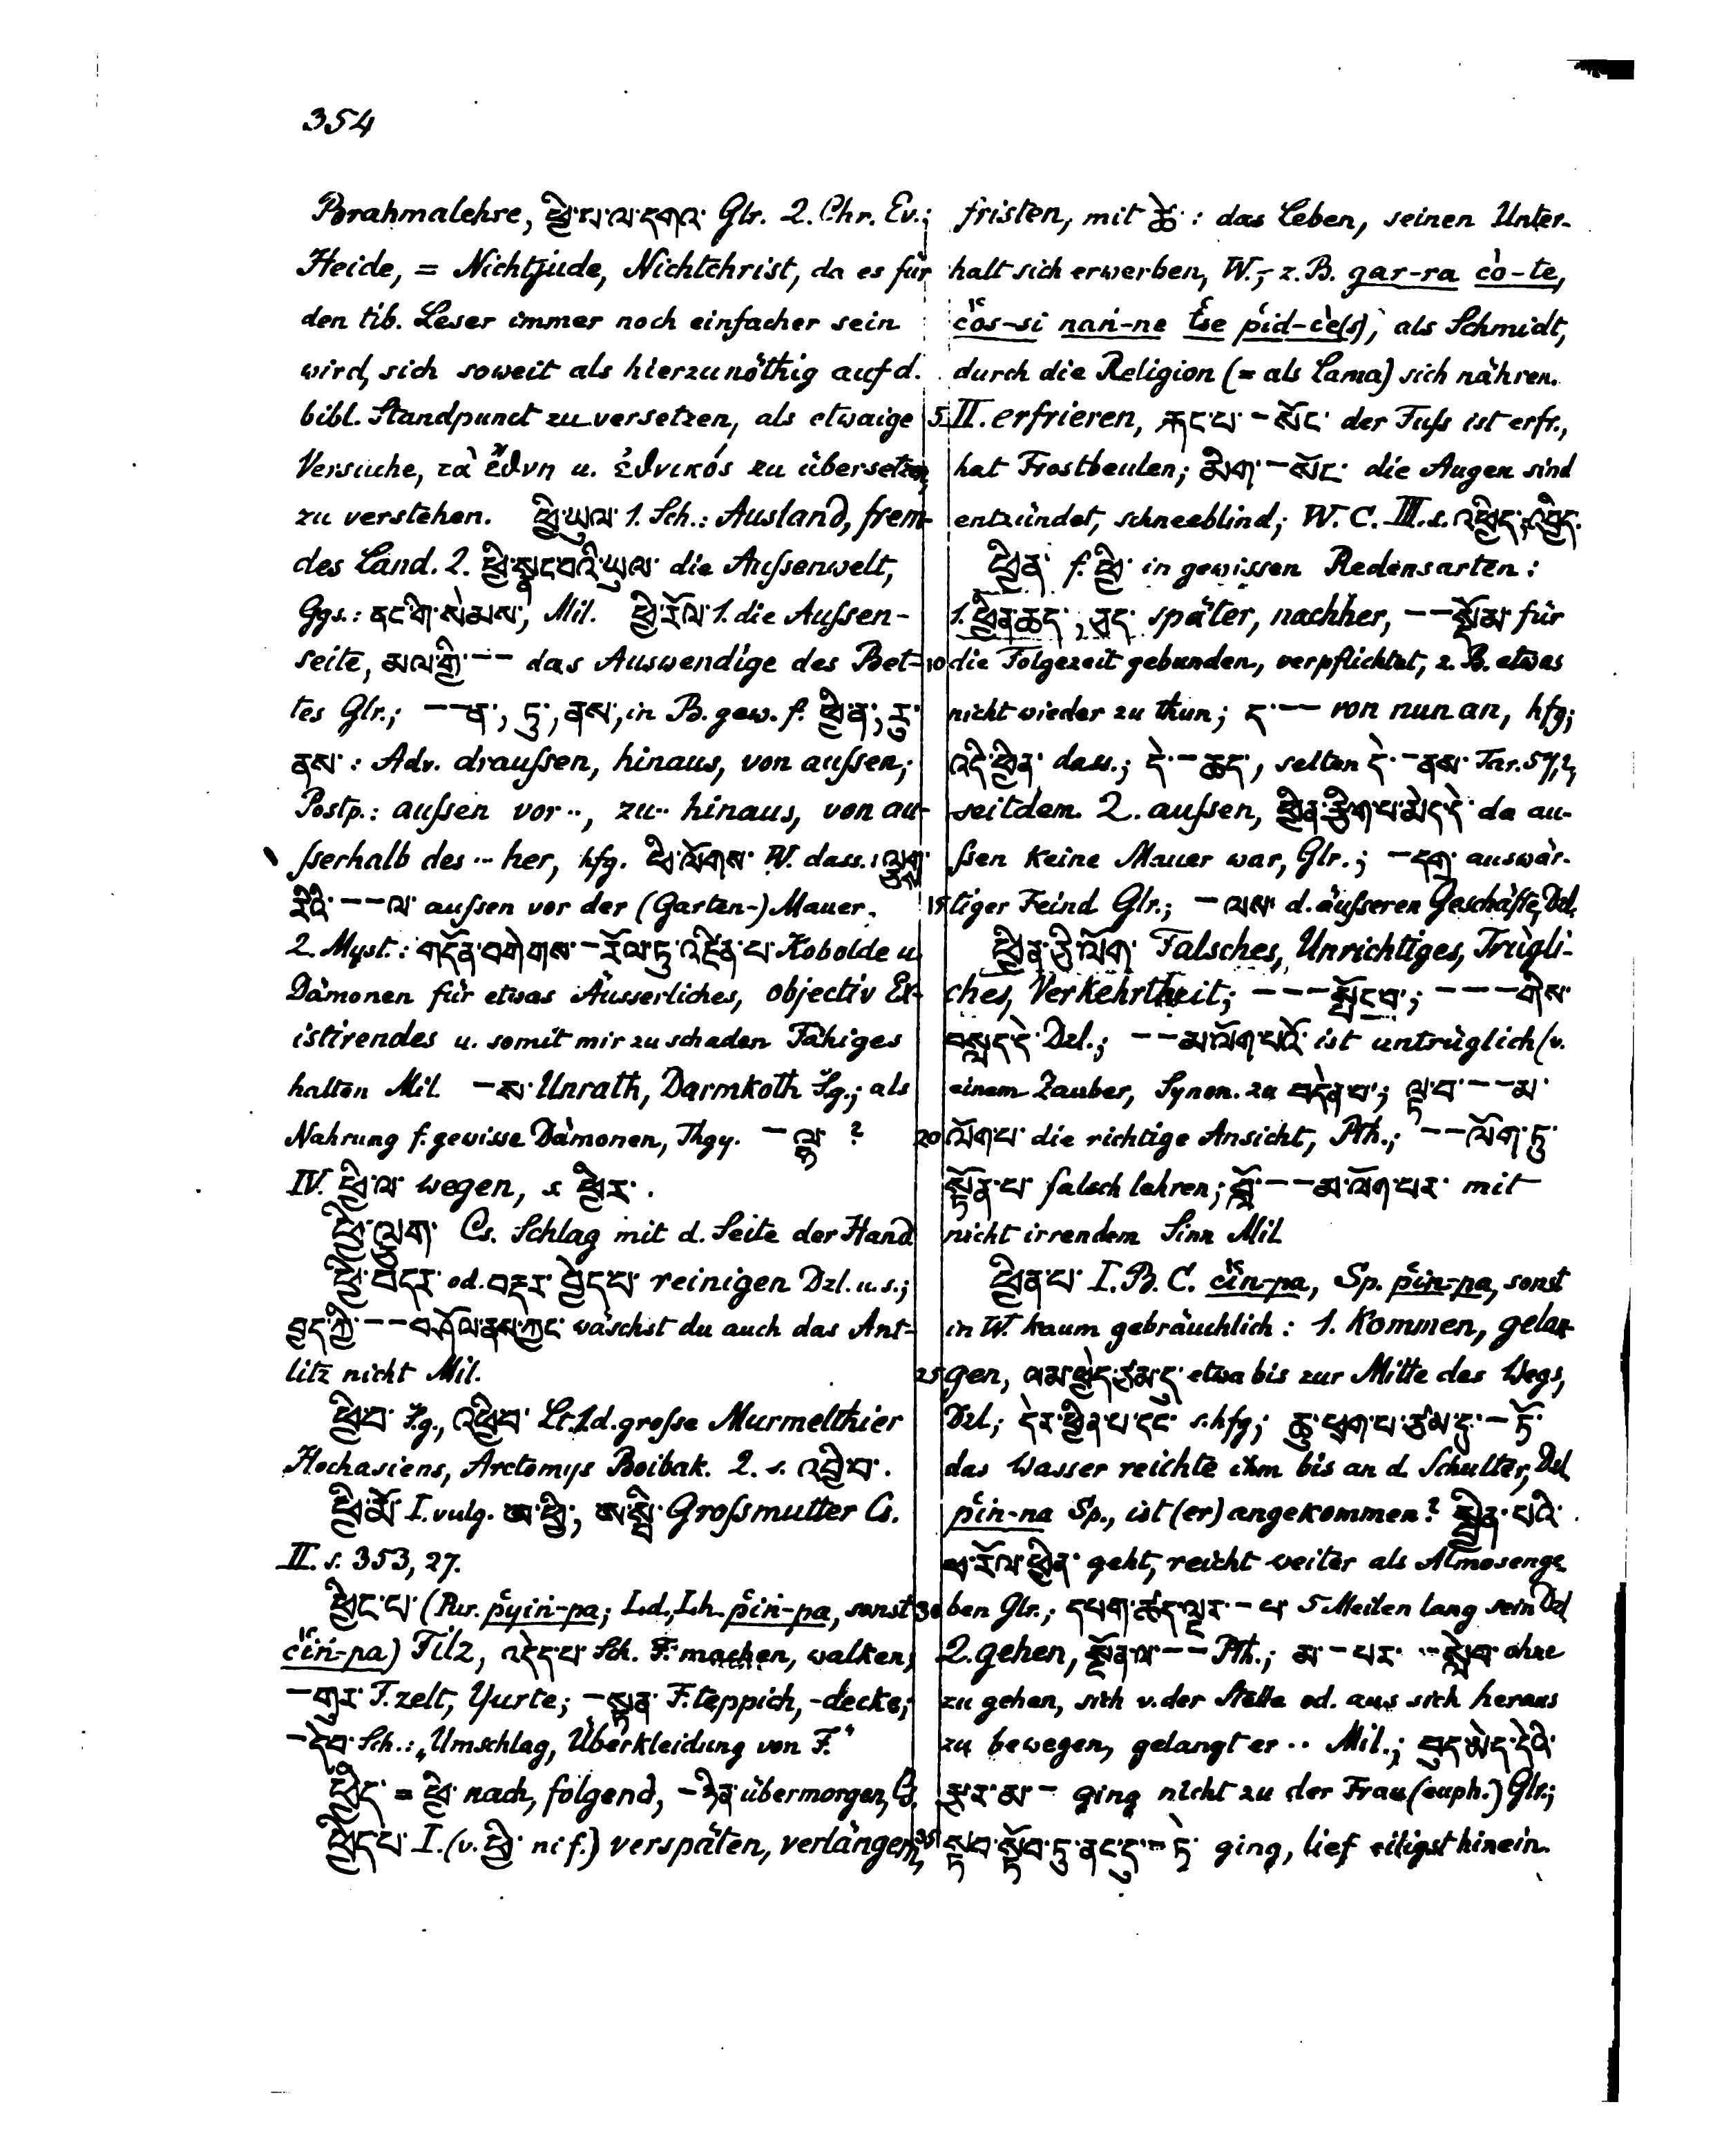 354
Brahmalehre, ཕྱི་པ་ལ་དགའ་ Glr. 2. Chr. Ev.;
Heide, = Nichtjude, Nichtchrist, da es für
den tib. Leser immer noch einfacher sein
wird, sich soweit als hierzu nöthig auf d.
bibl. Standpunct zu versetzen, als etwaige
Versuche, τὰ ἔθνη u. ἐθνικός zu übersetzen,
zu verstehen. ཕྱི་ཡུལ་ 1. Sch.: Ausland, frem-
des Land. 2. ཕྱི་སྣང་བའི་ཡུལ་ die Aussenwelt,
Ggs.: ནང་གི་སེམས་, Mil. ཕྱི་རོལ་ 1. die Aussen-
seite, མལ་གྱི་ –– das Auswendige des Bet-
tes Glr.; ––ན་, ཏུ་, ནས་, in B. gew. f. ཕྱི་ན་, རུ་
ནས་: Adv. draussen, hinaus, von aussen;
Postp.: aussen vor ··, zu ·· hinaus, von au-
sserhalb des ·· her, hfg. ཕྱི་ལོགས་ W. dass.: ལྕགས་
རིའི་ –– ལ་ aussen vor der (Garten-) Mauer.
2. Myst.: གདོན་བགེགས་ – རོལ་ཏུ་འཛིན་པ་ Kobolde u.
Dämonen für etwas Äusserliches, objectiv Ex-
istirendes u. somit mir zu schaden Fähiges
halten Mil. – ས་ Unrath, Darmkoth Lg.; als
Nahrung f. gewisse Dämonen, Thgy. – ལྟ་ ?
IV. ཕྱི་ལ་ wegen, s. ཕྱིར་.
ཕྱི་ལྕག་ Cs. Schlag mit d. Seite der Hand
ཕྱི་བདར་ od. བརྡར་བྱེད་པ་ reinigen Dzl. u. s.;
བྱད་ཀྱི་ –– བཤོལ་ནས་ཀྱང་ wäschst du auch das Ant-
litz nicht Mil.
ཕྱི་བ་ Lg., འཕྱི་བ་ Lt. 1. d. grosse Murmelthier
Hochasiens, Arctomys Boibak. 2. s. འབྱི་བ་.
ཕྱི་མོ་ I. vulg. ཨ་ཕྱི་, ཨ་སྤྱི་ Grossmutter Cs.
II. s. 353, 27.
ཕྱིང་པ་ (Pur. p̔yiṅ-pa; Ld., Lh. p̔iṅ-pa, sonst
c̔iṅ-pa) Filz, འདེད་པ་ Sch. F. machen, walken;
– གུར་ F. zelt, Yurte; – སྟན་ F. teppich, -decke;
– དེབ་ Sch.: „Umschlag, Überkleidung von F."
ཕྱིད་ = ཕྱི་ nach, folgend, – ཉིན་ übermorgen, Cs.
ཕྱིད་པ་ I. (v. ཕྱི་ ni f.) verspäten, verlängern,
fristen, mit ཚེ་: das Leben, seinen Unter-
halt sich erwerben, W.; z. B. gar-ra c̀o-te,
c̔os-si naṅ-ne t̔se p̔id-c̀e(s), als Schmidt,
durch die Religion (= als Lama) sich nähren.
5 II. erfrieren, རྐང་པ་ – སོང་ der Fuss ist erfr.,
hat Frostbeulen; མིག་ – སོང་ die Augen sind
entzündet, schneeblind; W. C. III. s. འཕྱིད་, འབྱིད་.
ཕྱིན་ f. ཕྱི་ in gewissen Redensarten:
1. ཕྱིན་ཆད་, ཆད་ später, nachher, –– སྡོམ་ für
10 die Folgezeit gebunden, verpflichtet, z. B. etwas
nicht wieder zu thun; ད་ –– von nun an, hfg;
འདི་ཕྱིན་ dass.; དེ་ – ཆད་, selten དེ་ – ནས་ Tar. 57, 2,
seitdem. 2. aussen, ཕྱིན་རྩིག་པ་མེད་དེ་ da au-
ssen keine Mauer war, Glr.; – དགྲ་ auswär-
15 tiger Feind Glr.; – ལས་ d. äusseren Geschäfte, Dzl.
ཕྱིན་ཅི་ལོག་ Falsches, Unrichtiges, Trügli-
ches, Verkehrtheit; ––– སྤྱོད་པ་; ––– གིས་
བསླད་དེ་ Dzl.; –– མ་ལོག་པའོ་ ist untrüglich (v.
einem Zauber, Synon. zu བདེན་པ་; ལྟ་བ་ –– མ་
20 ལོག་པ་ die richtige Ansicht, Pth.; –– ལོག་ཏུ་
སྟོན་པ་ falsch lehren; བློ་ –– མ་ལོག་པར་ mit
nicht irrendem Sinn Mil.
ཕྱིན་པ་ I. B. C. c̔in-pa, Sp. p̔in-pa, sonst
in W. kaum gebräuchlich: 1. kommen, gelan-
25 gen, ལམ་ཕྱེད་ཙམ་དུ་ etwa bis zur Mitte des Wegs,
Dzl; དེར་ཕྱིན་པ་དང་ s. hfg; ཆུ་ཕྲག་པ་ཙམ་དུ་ – ཏོ་
das Wasser reichte ihm bis an d. Schulter, Dzl
p̔in-na Sp., ist (er) angekommen? སྦྱིན་པའི་
ཕ་རོལ་ཕྱིན་ geht, reicht weiter als Almosenge-
30 ben Glr.; དཔག་ཚད་ལྔར་ – པ་ 5 Meilen lang sein Dzl
2. gehen, སྔོན་ལ་ –– Pth.; མ་ – པར་ ·· སླེབ་ ohne
zu gehen, sich v. der Stelle od. aus sich heraus
zu bewegen, gelangt er ·· Mil.; བུད་མེད་དེའི་
སྔར་མ་ – ging nicht zu der Frau (euph.) Glr.;
35 སྟབ་སྟོབ་ཏུ་ནང་དུ་ – ཏེ་ ging, lief eiligst hinein.